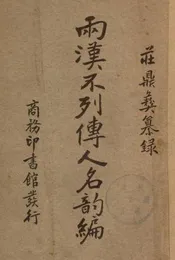 莊鼎彝纂錄
兩漢不列傳人名韵編
商務印書館發行